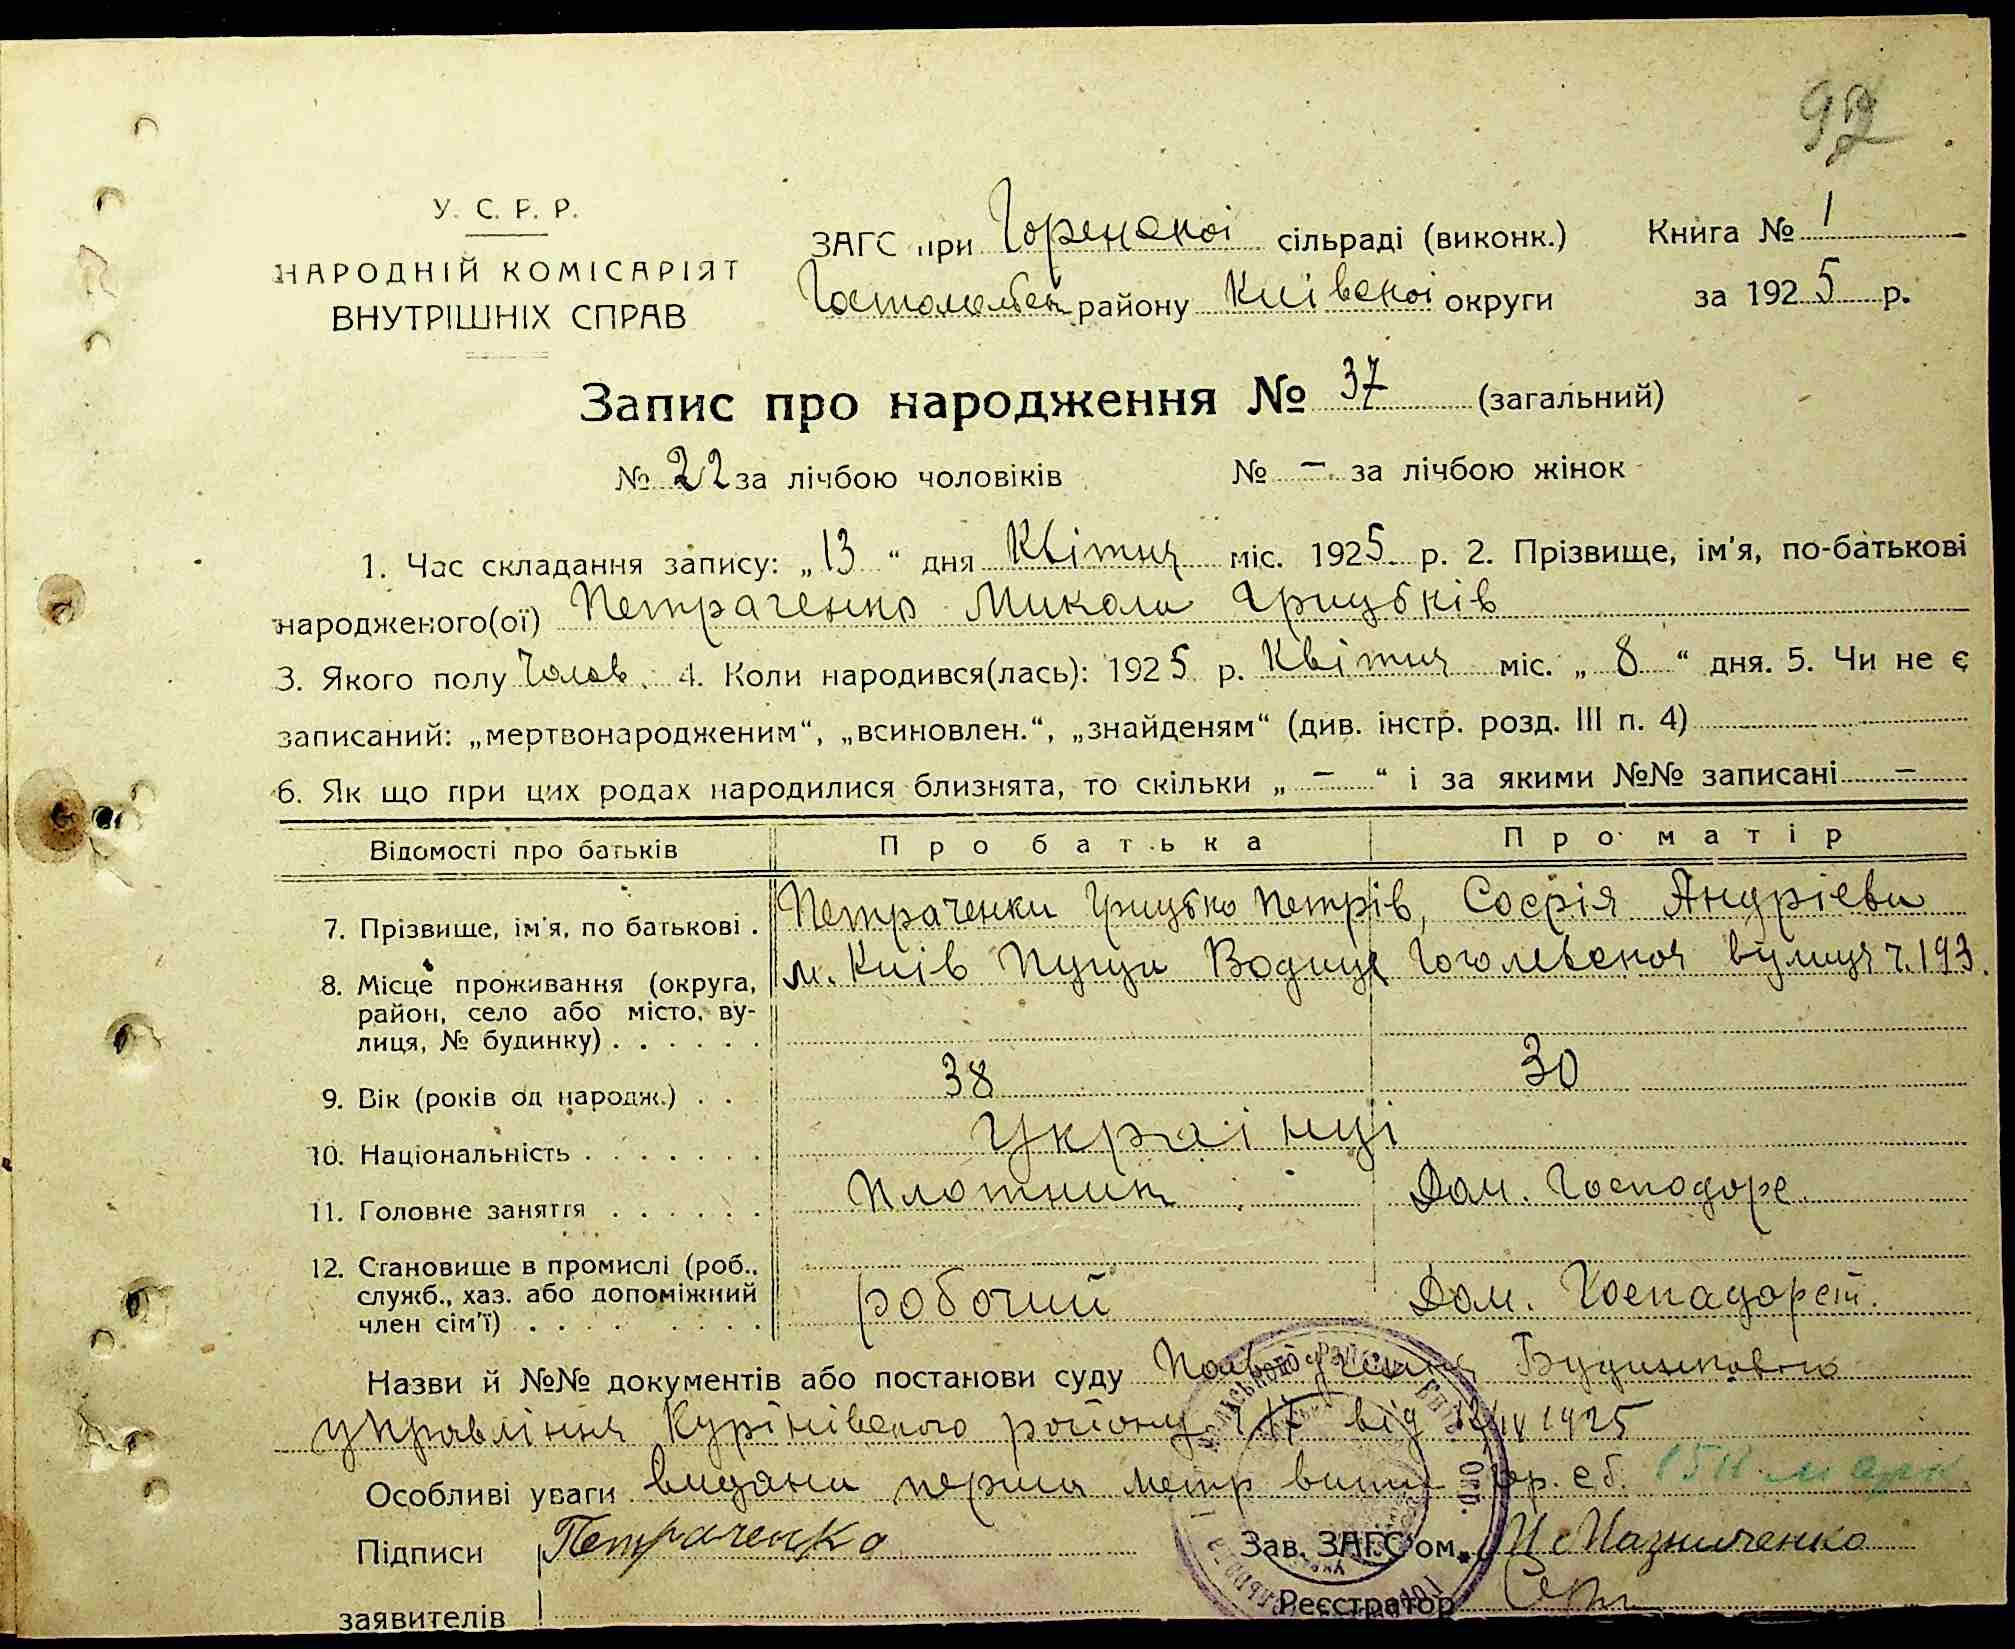 92
У. С. Р. Р.
НАРОДНІЙ КОМІСАРІЯТ
ВНУТРІШНІХ СПРАВ
ЗАГС при Горенської сільраді (виконк.) Книга № 1
Гостомельск району Київської округи за 1925 р.
Запис про народження № 37 (загальний)
№ 22 за лічбою чоловіків № – за лічбою жінок
1. Час складання запису: „13“ дня Квітня міс. 1925 р. 2. Прізвище, ім'я, по-батькові
народженого(ої) Петраченко Микола Грицьків
3. Якого полу Чолов. 4. Коли народився(лась): 1925 р. Квітня міс. „8“ дня. 5. Чи не є
записаний: „мертвонародженим“, „всиновлен.“, „знайденям“ (див. інстр. розд. III п. 4)
6. Як що при цих родах народилися близнята, то скільки „–“ і за якими №№ записані –
Відомості про батьків Про батька Про матір
7. Прізвище, ім'я, по батькові . Петраченки Грицько Петрів, Софія Андріева
8. Місце проживання (округа, м. Київ Пуща Водиця Гоголевская вулиця ч. 193.
район, село або місто, ву-
лиця, № будинку) . . . . . .
9. Вік (років од народж.) . . 38 30
10. Національність . . . . . . . Українці
11. Головне заняття . . . . . . Плотник Дом. Господоре
12. Становище в промислі (роб.,
служб., хаз. або допоміжний робочий Дом. Госпадорст.
член сім'ї) . . . . . . . . .
Назви й №№ документів або постанови суду Будинкового
управління Курінівського району від 12/IV 1925
Особливі уваги видана перша метр випи
Підписи Петраченко Зав. ЗАГС'ом
заявителів Реєстратор